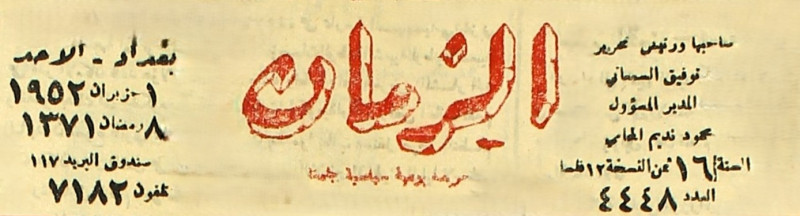 صاحبها ورئيس تحريره
توفيق السمعاني
المدير المسؤول
محمود نديم المحامي
السنة ١٦ ثمن النسخة ١٢ فلسا
العدد ٤٤٤٨
الزمان
جريدة يومية سياسية جامعة
بغداد - الاحد
١ حزيران ١٩٥٢
٨ رمضان ١٣٧١
صندوق البريد ١١٧
تلفون ٧١٨٢